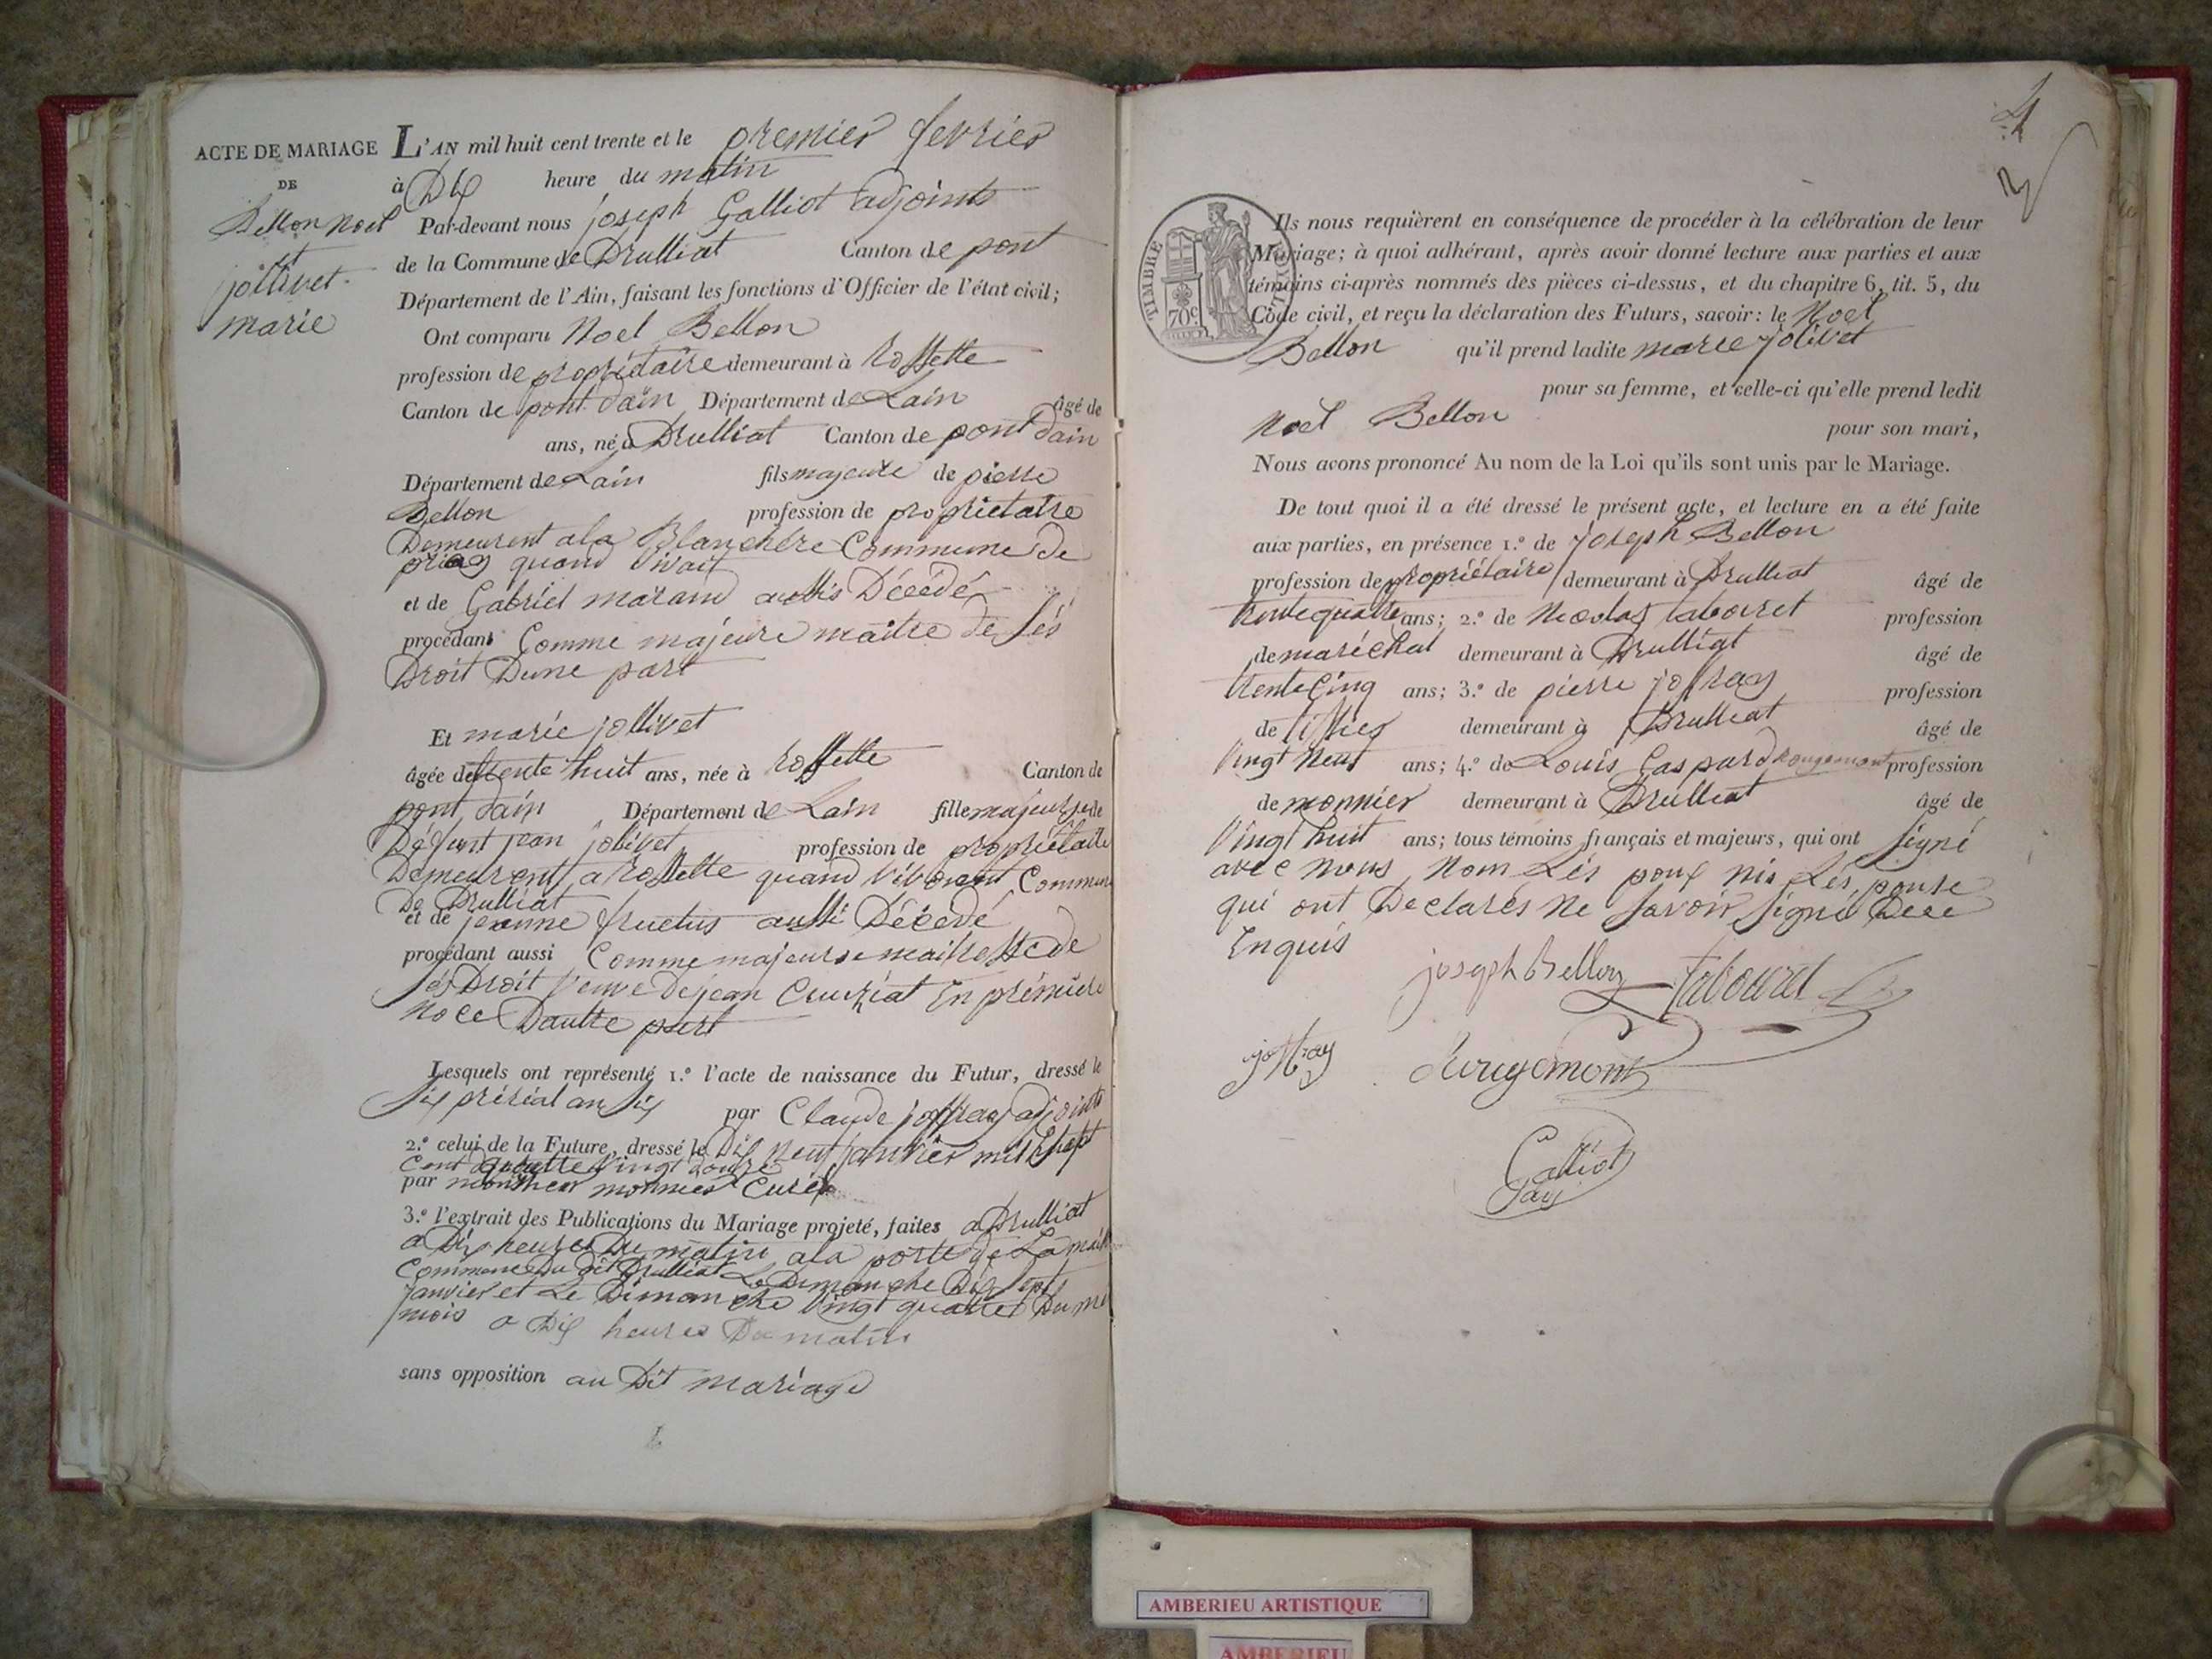 ACTE DE MARIAGE
DE
Bellon noel
et
jollivet
marie
L'AN mil huit cent trente et le premier fevrier
à Dix heure du matin
Par-devant nous joseph Galliot adjoints
de la Commune de Drulliat Canton de pont
Département de l'Ain, faisant les fonctions d'Officier de l'état civil;
Ont comparu Noel Bellon
profession de propriétaire demeurant à Rossette
Canton de pont dain Département de Lain âgé de
ans, né à Drulliat Canton de pont dain
Département de Lain fils majeure de pierre
Bellon profession de propriétatre
Demeurent a la Blanchére Commune de
priay quand vivait
et de Gabriel marand aussis Décédé
procédant Comme majeure maitre de sés
Droit Dune part
Et marie jollivet
âgée de trente huit ans, née à Rossette Canton de
pont dain Département de Lain fille majeurse de
Défunt jean jolivet profession de propriétaire
Demeurent a Rossette quand vivoient Commune
De Drulliat
et de jeanne fructus aussi Décédé
procédant aussi Comme majeurse maitresse de
sés Droit veuve De jean Cruziat En prémiere
Noce Dautre part
Lesquels ont représenté 1.º l'acte de naissance du Futur, dressé le
six prérial an six par Claude joffray adjoints
2.º celui de la Future, dressé le Dix neuf janvier mil shept
Cent quattre vingt douze
par monsieur monnier Curé
3.º l'extrait des Publications du Mariage projeté, faites a Drulliat
a Dix heures Du matin a la porte de La
Commune Du dit Drulliat Le Dimanche Dix sept
janvier et Le Dimanche vingt quatre Du
mois a Dix heures Du matin
sans opposition au Dit mariage
4
TIMBRE ROYAL
70c
Ils nous requièrent en conséquence de procéder à la célébration de leur
Mariage; à quoi adhérant, après avoir donné lecture aux parties et aux
témoins ci-après nommés des pièces ci-dessus, et du chapitre 6, tit. 5, du
Code civil, et reçu la déclaration des Futurs, savoir: le Noel
Bellon qu'il prend ladite marie jolivet
pour sa femme, et celle-ci qu'elle prend ledit
Noel Bellon pour son mari,
Nous avons prononcé Au nom de la Loi qu'ils sont unis par le Mariage.
De tout quoi il a été dressé le présent acte, et lecture en a été faite
aux parties, en présence 1.º de joseph Bellon
profession de propriétaire demeurant à Drulliat âgé de
trente quatre ans; 2.º de Nicolas tabouret profession
de maréchal demeurant à Drulliat âgé de
trente Cinq ans; 3.º de pierre joffray profession
de tissier demeurant à Drulliat âgé de
vingt neuf ans; 4.º de Louis Gaspard Rougemont profession
de monnier demeurant à Drulliat âgé de
vingt huit ans; tous témoins français et majeurs, qui ont signé
avec nous Nom Lés poux nis Lés pouse
qui ont Declarés Ne savoir signé Dece
Enquis
joseph Bellon Tabouret
joffray Rougemont
Galliot